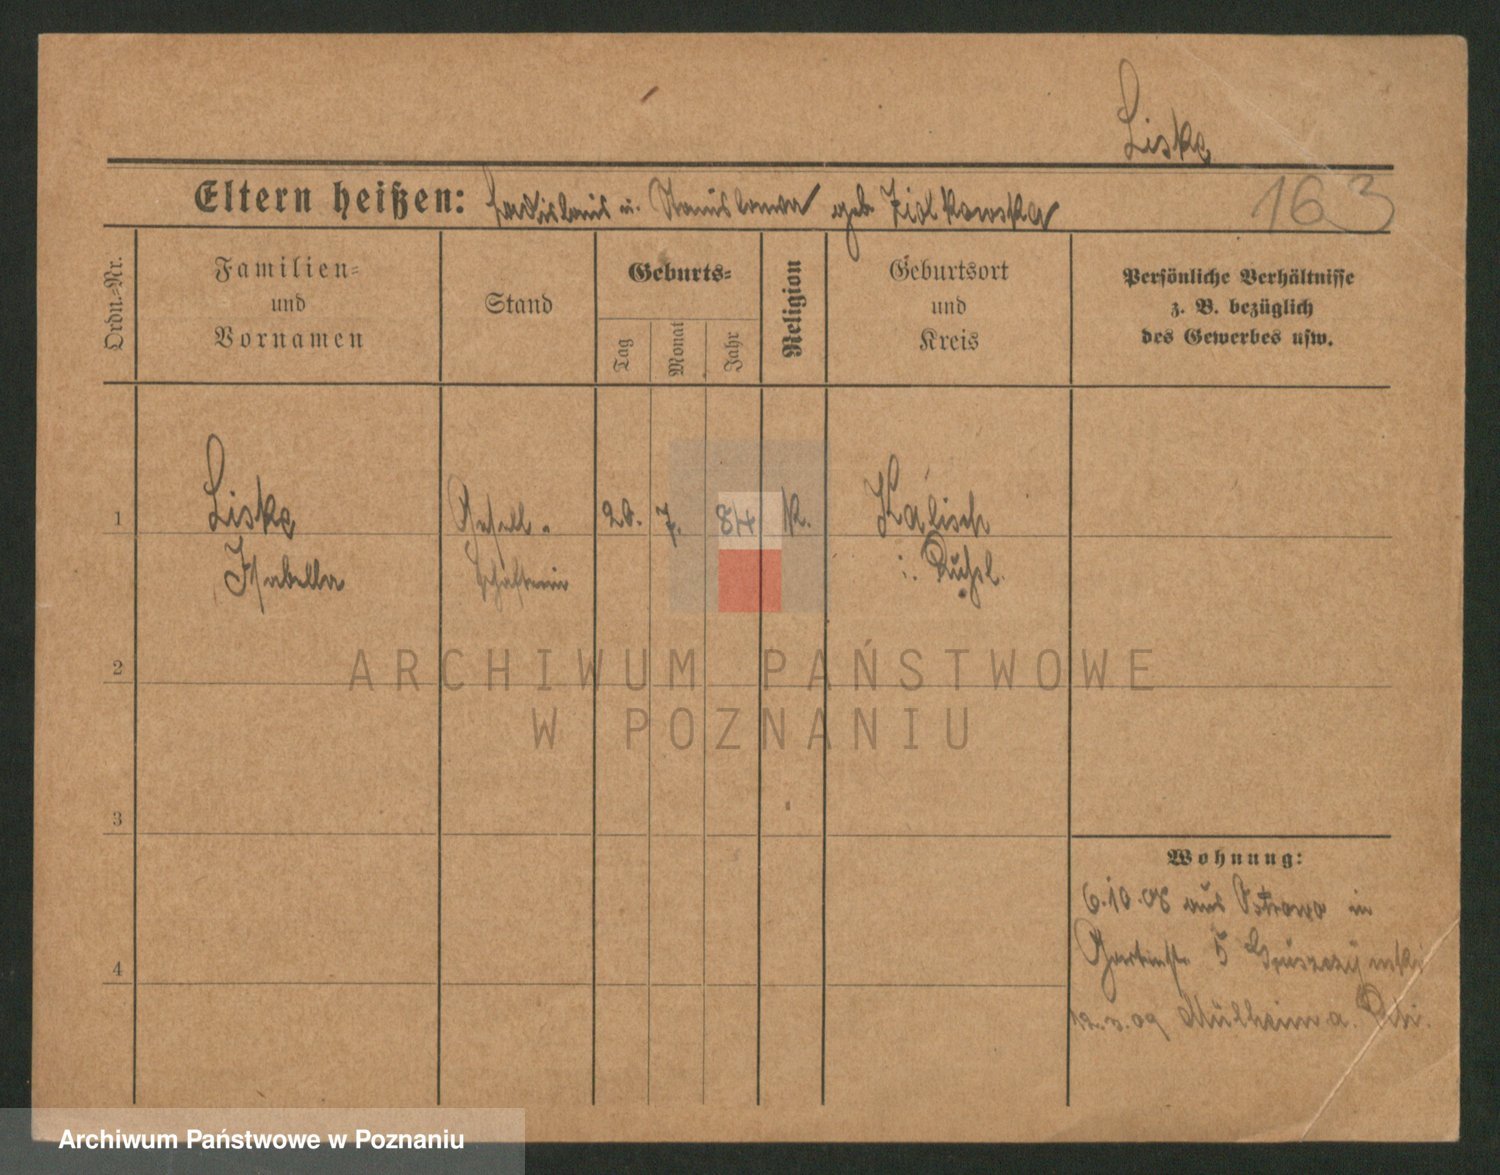 Liske
Eltern heißen: Ladislaus u. Stanislawa geb. Ziolkowska
163
Ordn.=Nr.
Familien=
und
Vornamen
Stand
Geburts=
Tag
Monat
Jahr
Religion
Geburtsort
und
Kreis
Persönliche Verhältnisse
z. B. bezüglich
des Gewerbes usw.
1
Liske
Isabella
Gesell-
schafterin
20. 7. 84
K.
Kalisch
i. Rußl.
2
3
4
Wohnung:
6.10.08 aus Ostrowo in
5 Gruszczynski
12.3.09 Mülheim a.
ARCHIWUM PAŃSTWOWE
W POZNANIU
Archiwum Państwowe w Poznaniu